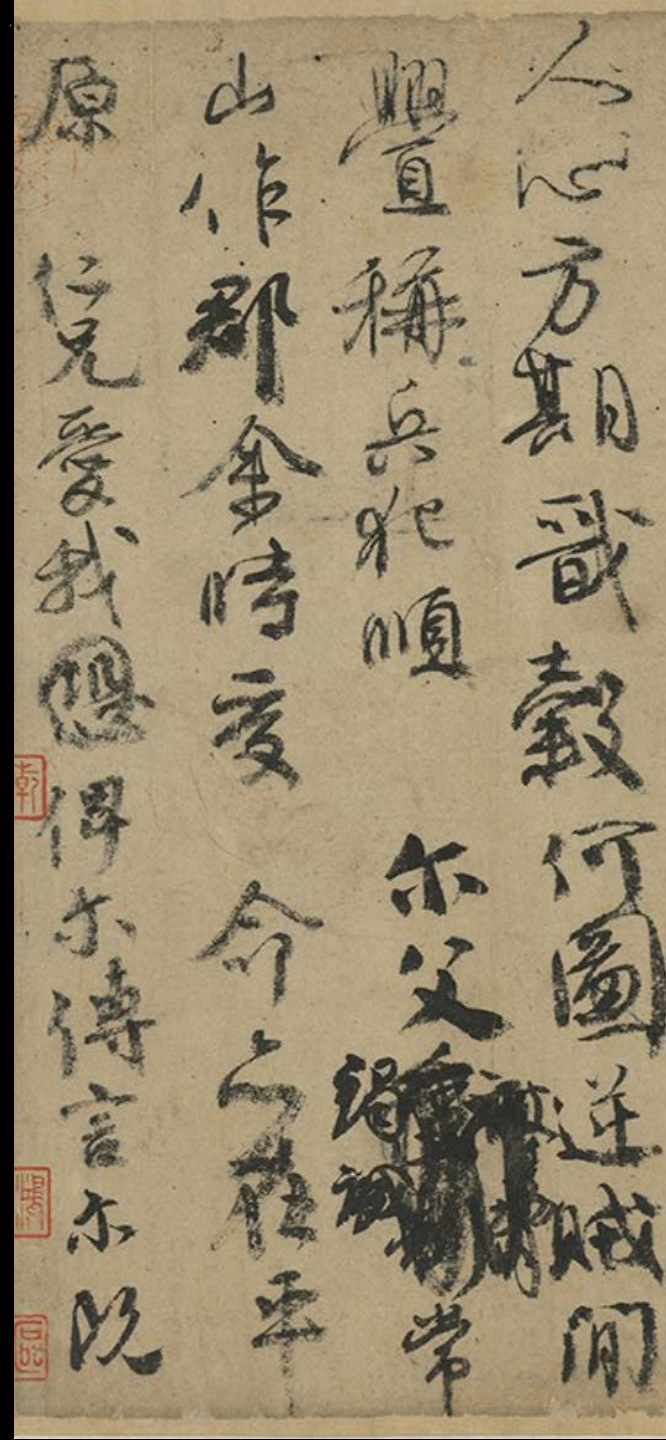 人心方期戩穀何圖逆賊閒
舋稱兵犯順尓父竭誠常
山作郡余時受命亦在平
原仁兄愛我俾尓傳言尓既